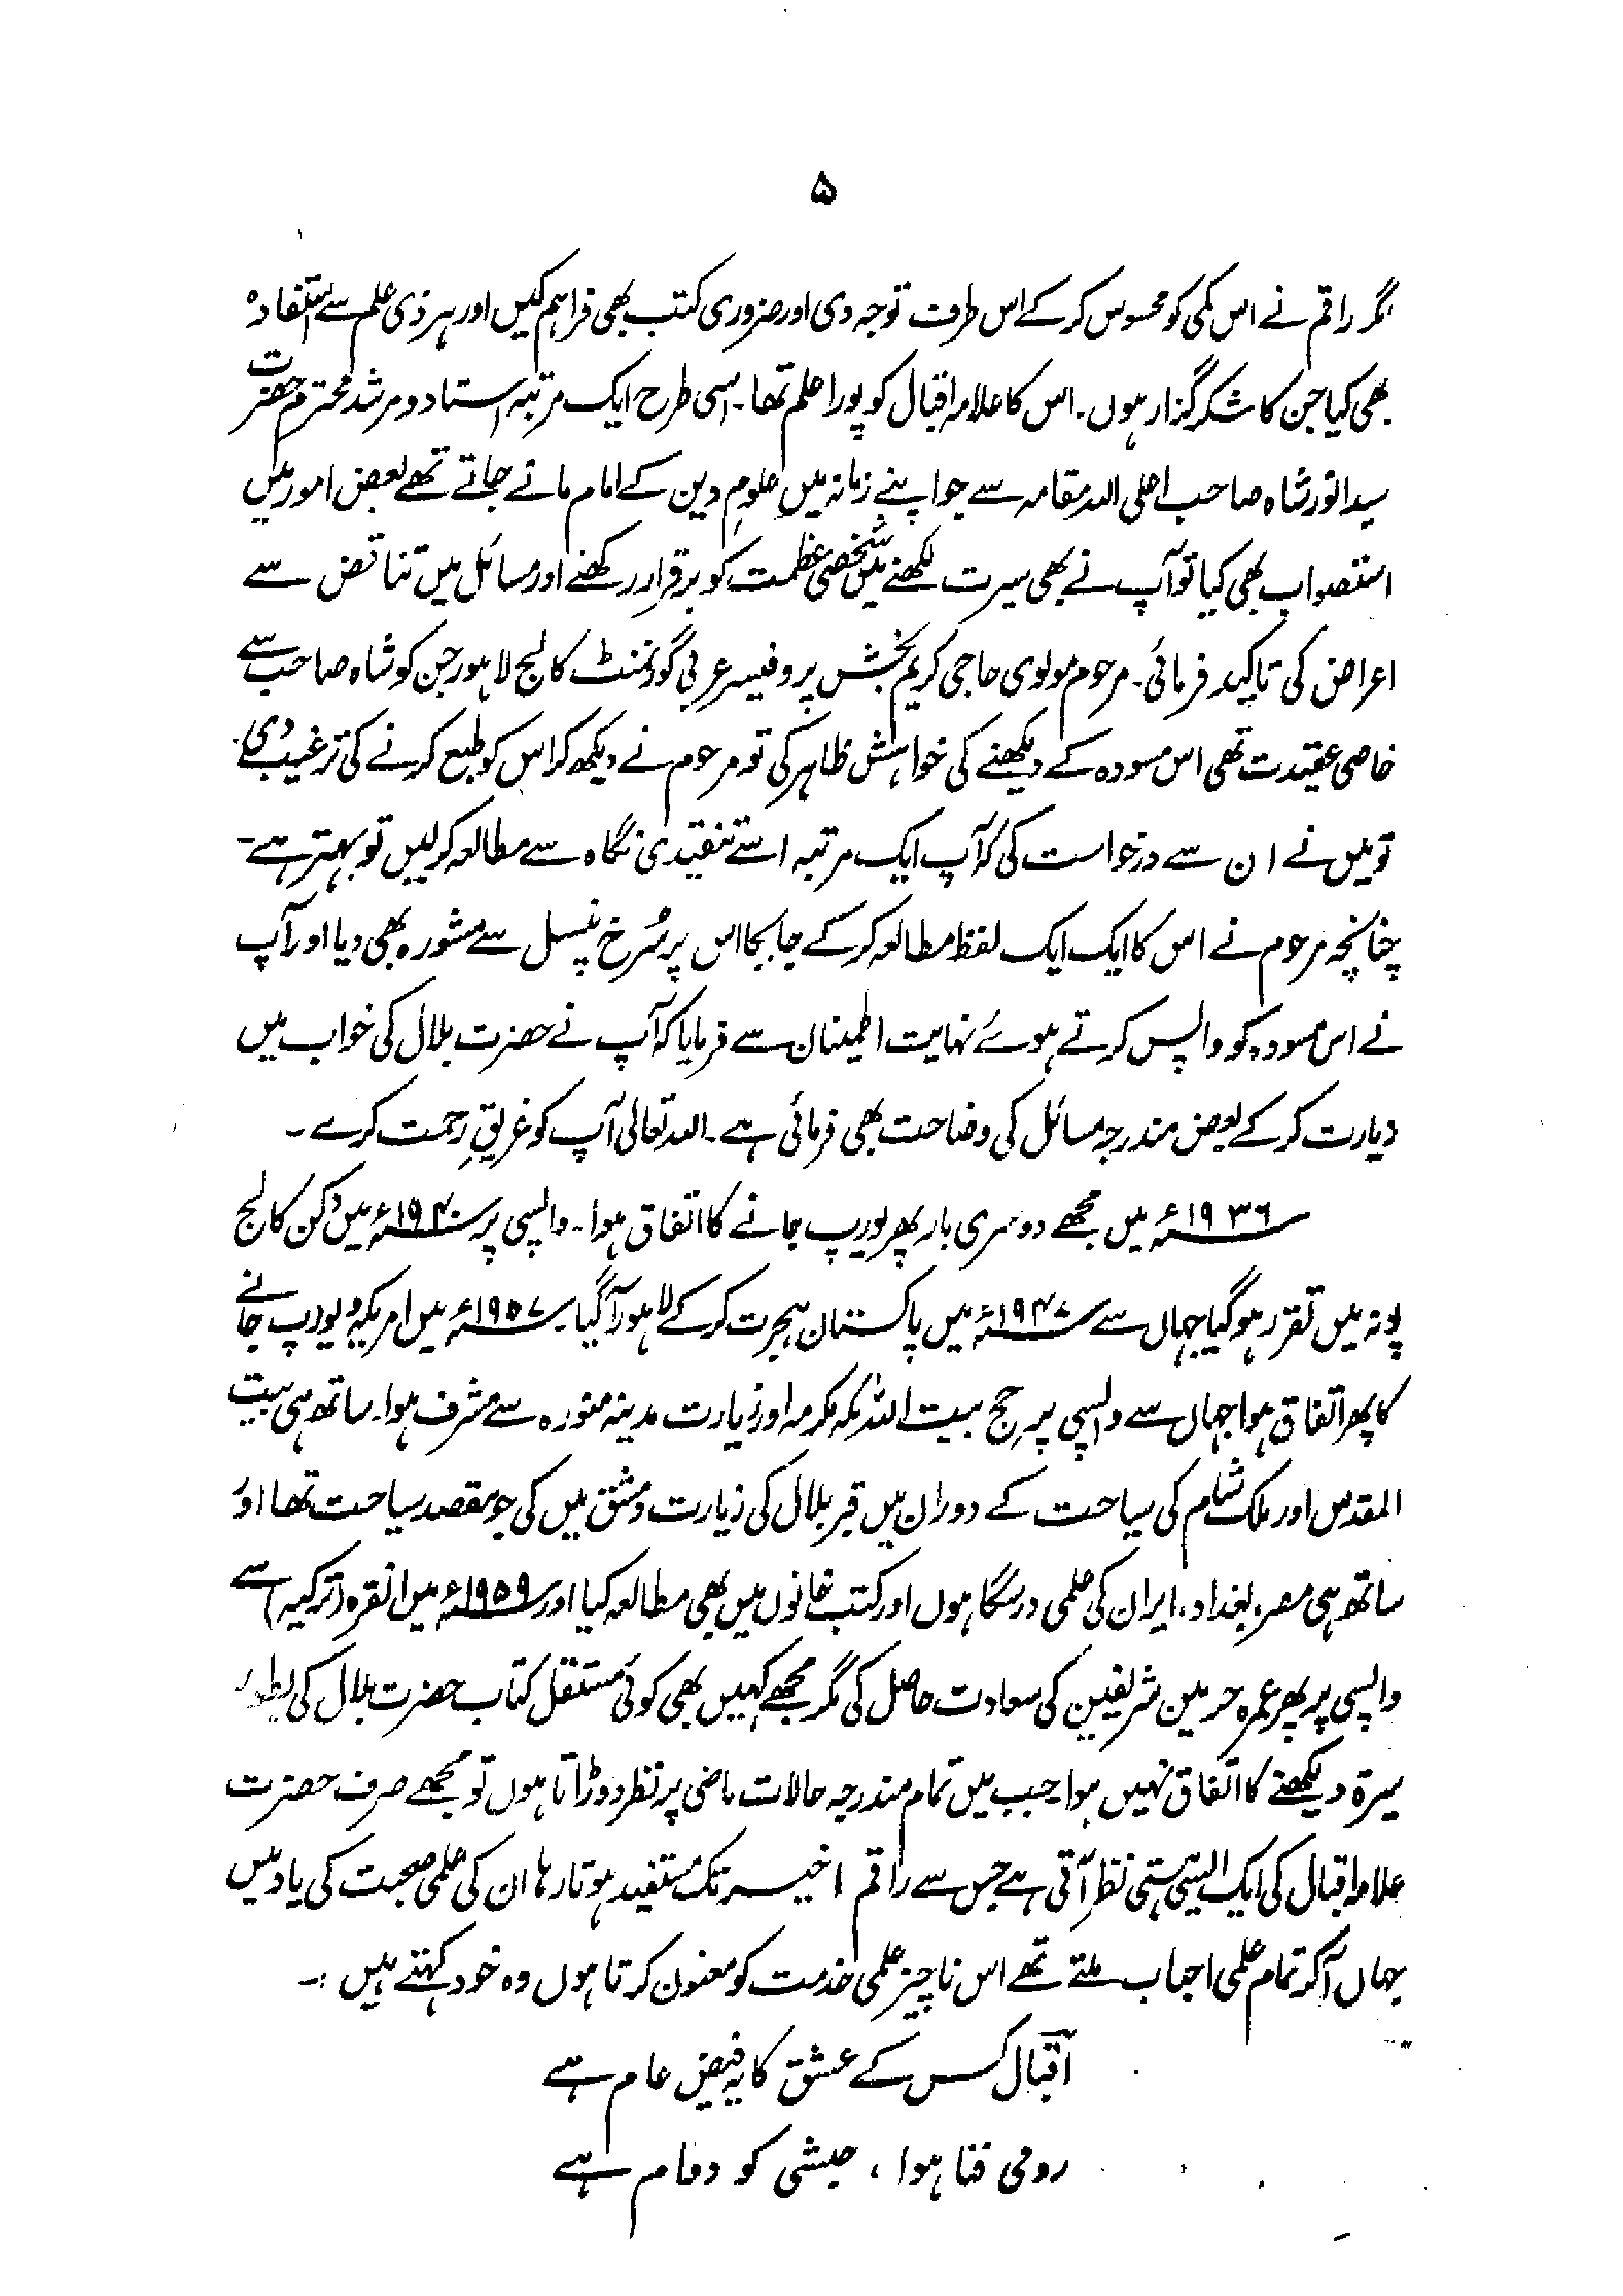 ۵
مگر راقم نے اس کمی کو محسوس کر کے اس طرف توجہ دی اور ضروری کتب بھی فراہم کیں اور ہر ذی علم سے استفادہ
بھی کیا جن کا شکر گزار ہوں۔ اس کا علامہ اقبال کو پورا علم تھا۔ اسی طرح ایک مرتبہ استاد و مرشد محترم حضرت
سید انور شاہ صاحب اعلی اللہ مقامہ سے جو اپنے زمانہ میں علومِ دین کے امام مانے جاتے تھے بعض امور میں
استصواب بھی کیا تو آپ نے بھی سیرت لکھنے میں شخصی عظمت کو برقرار رکھنے اور مسائل میں تناقض سے
اعراض کی تاکید فرمائی۔ مرحوم مولوی حاجی کریم بخش پروفیسر عربی گورنمنٹ کالج لاہور جن کو شاہ صاحب سے
خاصی عقیدت تھی اس مسودہ کے دیکھنے کی خواہش ظاہر کی تو مرحوم نے دیکھ کر اس کو طبع کرنے کی ترغیب دی۔
تو میں نے ان سے درخواست کی کہ آپ ایک مرتبہ اسے تنقیدی نگاہ سے مطالعہ کر لیں تو بہتر ہے۔
چنانچہ مرحوم نے اس کا ایک ایک لفظ مطالعہ کر کے جابجا اس پر سُرخ پنسل سے مشورہ بھی دیا اور آپ
نے اس مسودہ کو واپس کرتے ہوئے نہایت اطمینان سے فرمایا کہ آپ نے حضرت بلال کی خواب میں
زیارت کر کے بعض مندرجہ مسائل کی وضاحت بھی فرمائی ہے۔ اللہ تعالیٰ آپ کو غریقِ رحمت کرے۔
۱۹۳۶ء میں مجھے دوسری بار پھر یورپ جانے کا اتفاق ہوا۔ واپسی پر ۱۹۴۰ء میں دکن کالج
پونہ میں تقرر ہو گیا جہاں سے ۱۹۴۷ء میں پاکستان ہجرت کر کے لاہور آگیا۔ ۱۹۵۷ء میں امریکہ و یورپ جانے
کا پھر اتفاق ہوا جہاں سے واپسی پر حج بیت اللہ مکہ مکرمہ اور زیارت مدینہ منورہ سے مشرف ہوا۔ ساتھ ہی بیت
المقدس اور ملک شام کی سیاحت کے دوران میں قبر بلال کی زیارت دمشق میں کی جو مقصد سیاحت تھا اور
ساتھ ہی مصر، بغداد، ایران کی علمی درسگاہوں اور کتب خانوں میں بھی مطالعہ کیا اور ۱۹۵۹ء میں انقرہ (ترکیہ) سے
واپسی پر پھر عمرہ حرمین شریفین کی سعادت حاصل کی مگر مجھے کہیں بھی کوئی مستقل کتاب حضرت بلال کی بطور
سیرۃ دیکھنے کا اتفاق نہیں ہوا۔ جب میں تمام مندرجہ حالات ماضی پر نظر دوڑاتا ہوں تو مجھے صرف حضرت
علامہ اقبال کی ایک ایسی ہستی نظر آتی ہے جس سے راقم اخیر تک مستفید ہوتا رہا ان کی علمی صحبت کی یاد میں
جہاں آکر تمام علمی احباب ملتے تھے اس ناچیز علمی خدمت کو معنون کرتا ہوں وہ خود کہتے ہیں :۔
اقبال کس کے عشق کا یہ فیض عام ہے
رومی فنا ہوا ، حبشی کو دوام ہے